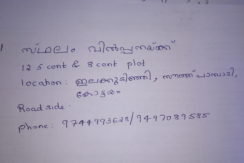 സ്ഥലം വിൽപ്പനയ്ക്ക്
12.5 cent & 8 cent plot
location: ഇലക്കൊടിഞ്ഞി, സൗത്ത് പാമ്പാടി,
കോട്ടയം
Road side.
phone: 9744993628/9497089585